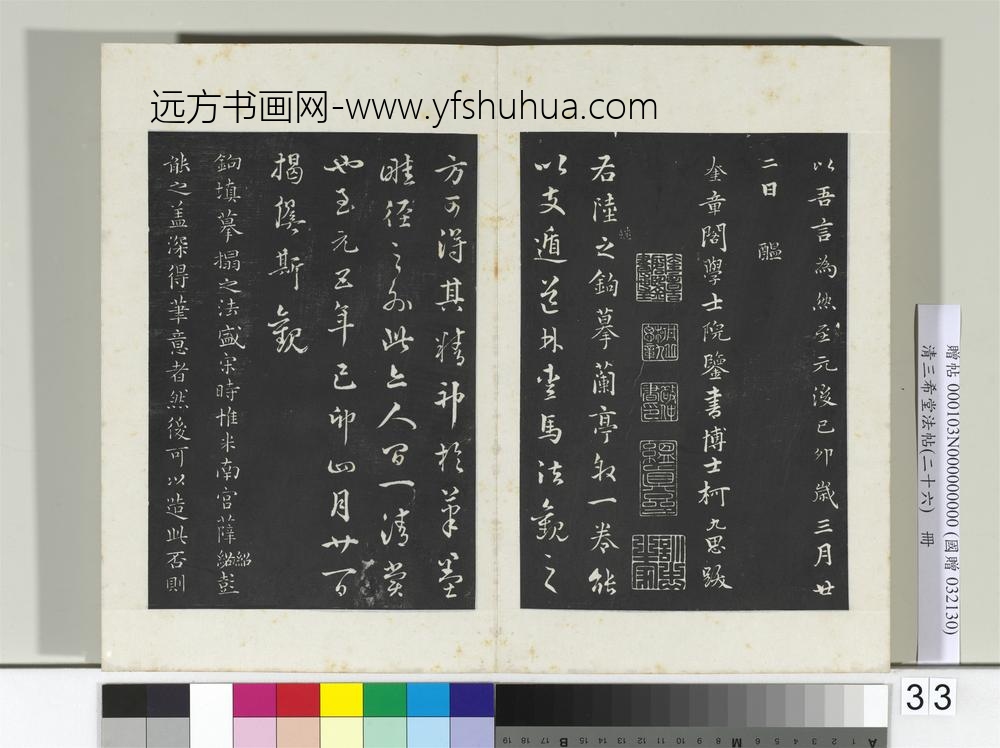 远方书画网-www.yfshuhua.com
以吾言為然至元後己卯歲三月廿
二日 醖
奎章閣學士院鑒書博士柯九思跋
右陸之鉤摹蘭亭敘一卷能
以支遁道林愛馬法觀之
方可得其精神於筆墨
畦徑之外此亦人間一清賞
也至元五年己卯四月廿一日
揭傒斯觀
鉤填摹搨之法盛宋時惟米南宮薛紹彭
能之盖深得筆意者然後可以造此否則
贈帖 000103N000000000 (國贈 032130)
清三希堂法帖(二十六) 冊
33